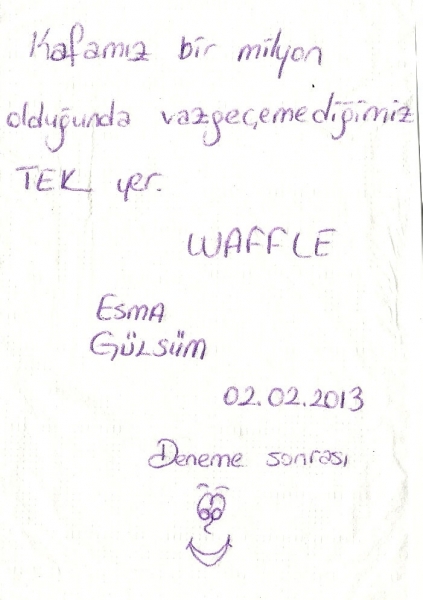 Kafamız bir milyon
olduğunda vazgeçemediğimiz
TEK yer.
WAFFLE
Esma
GÜLSÜM
02.02.2013
Deneme sonrası